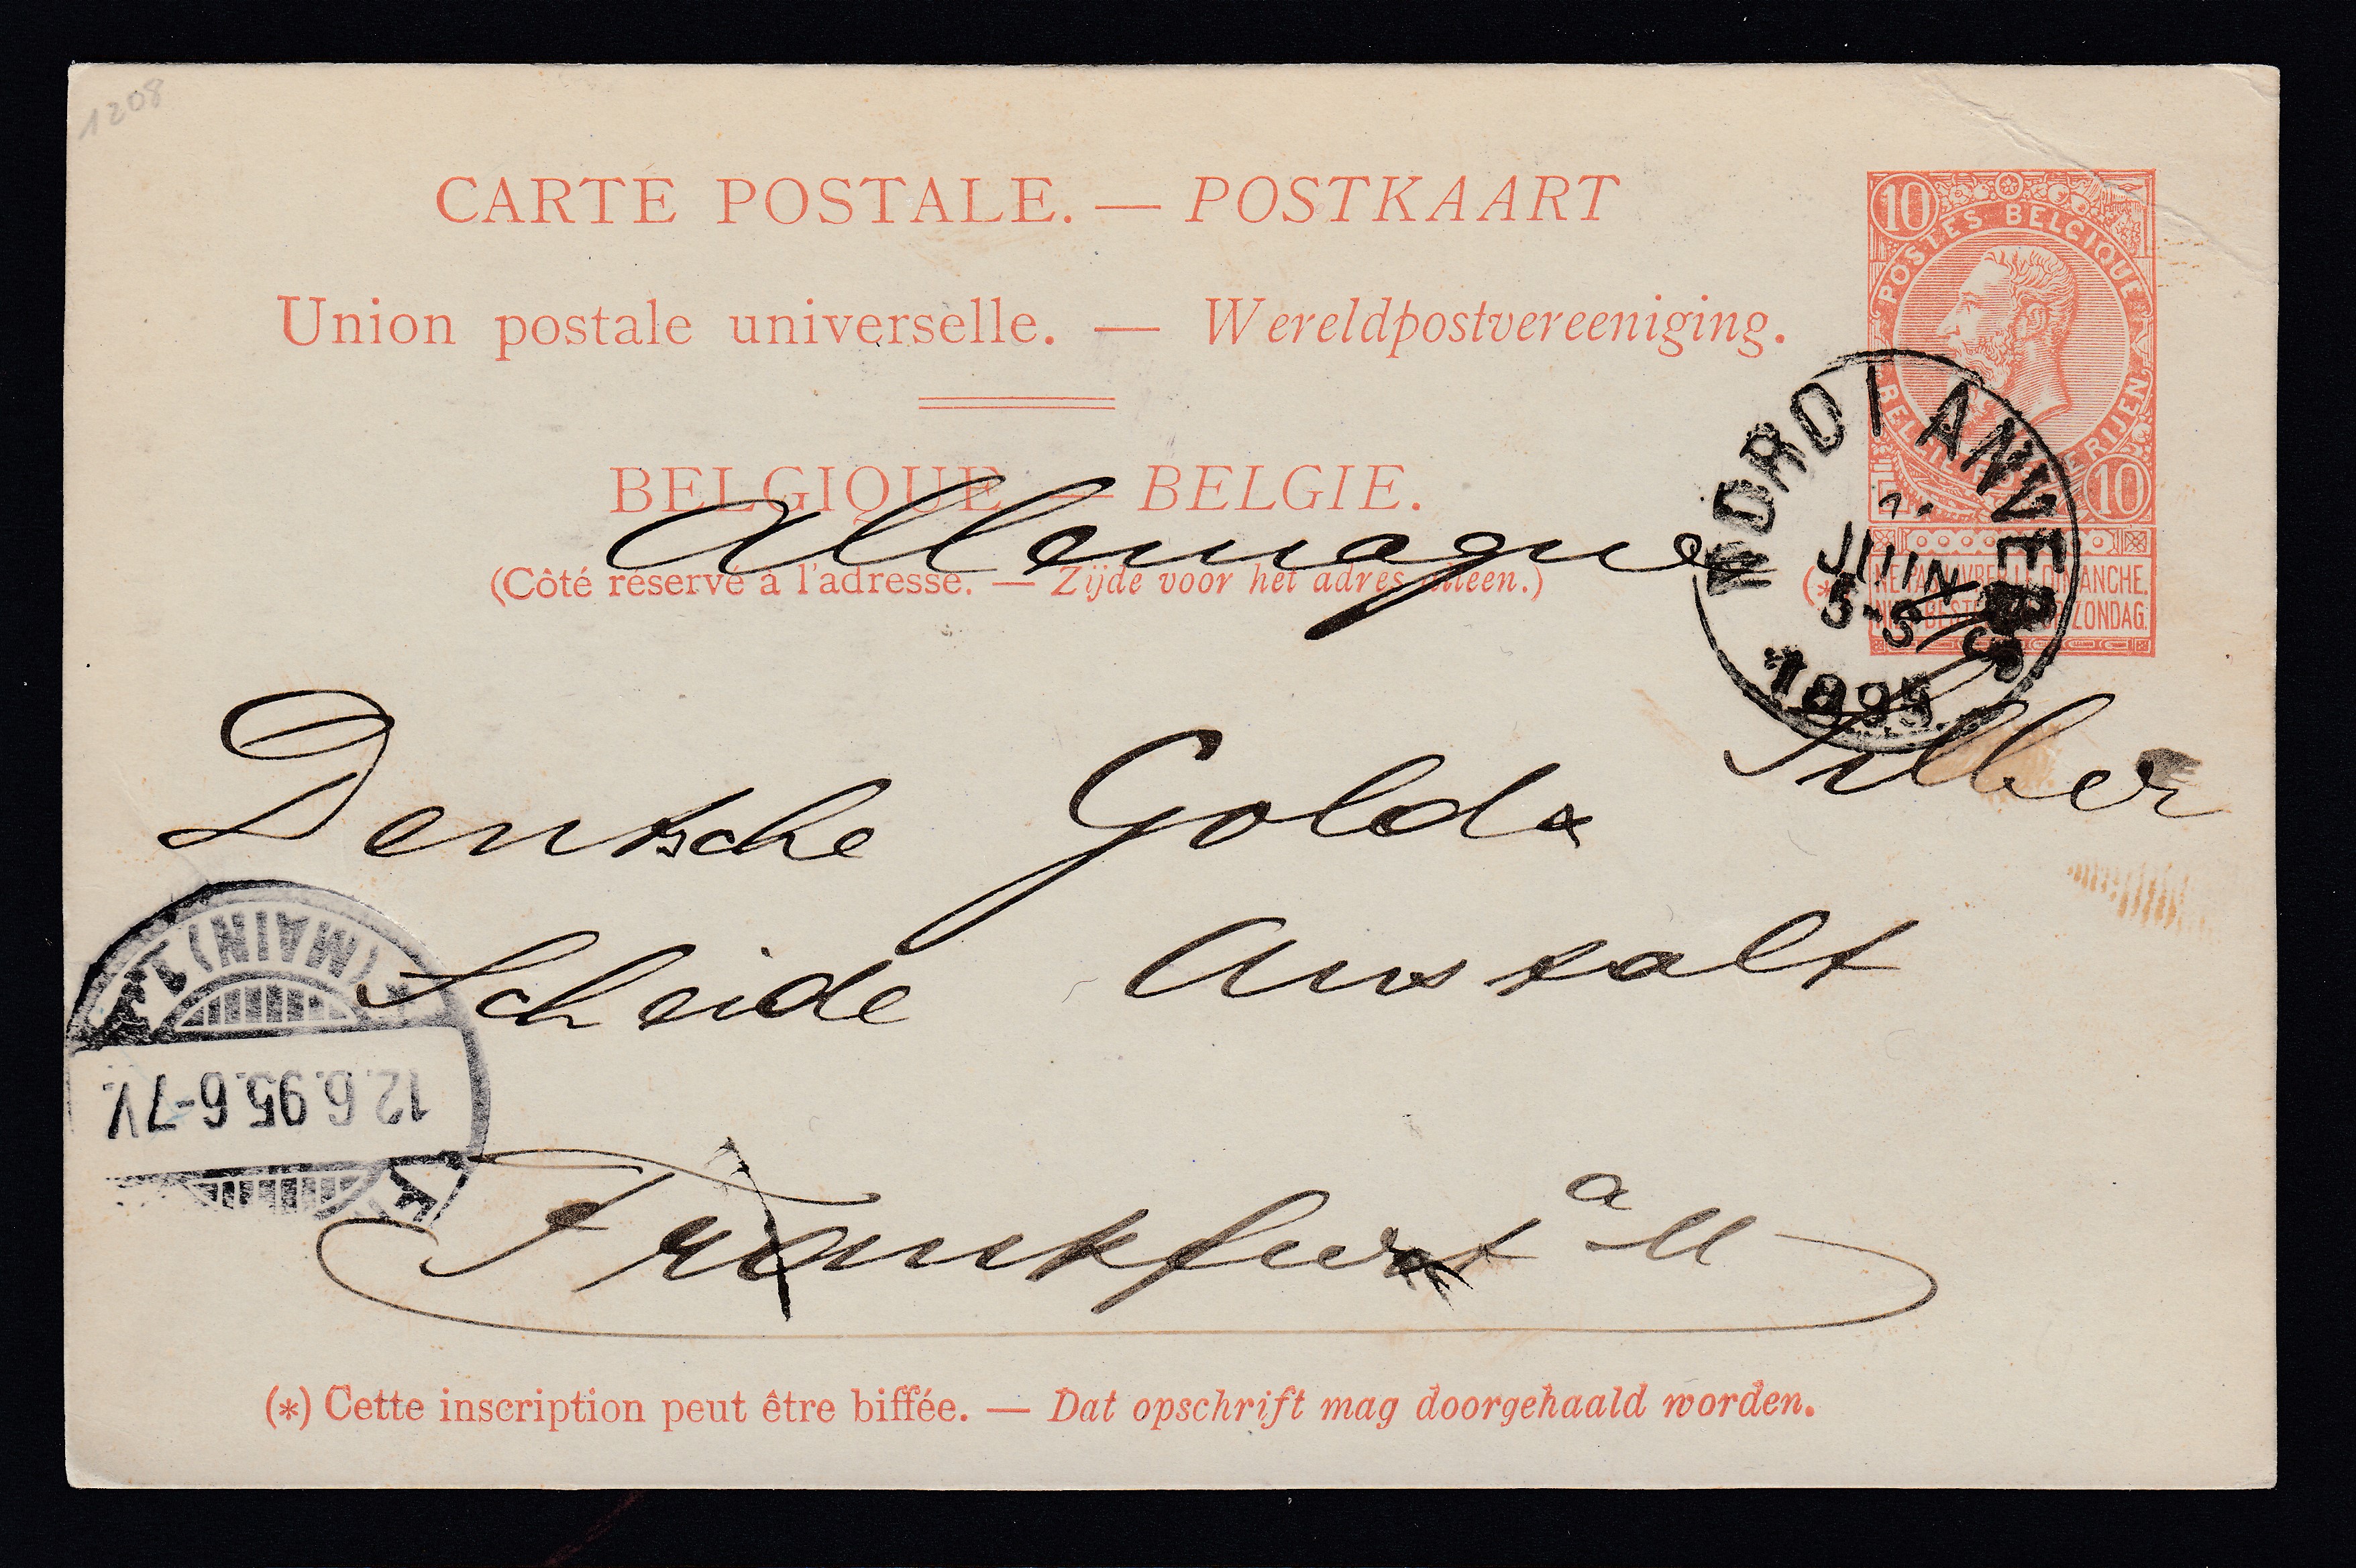 1208
CARTE POSTALE. — POSTKAART
Union postale universelle. — Wereldpostvereeniging.
BELGIQUE — BELGIE.
(Côté réservé à l'adresse. — Zijde voor het adres alleen.)
10
POSTES BELGIQUE
10
NE PAS LIVRER LE DIMANCHE.
ZONDAG.
(*)
ANVERS
JUIN
1895
Allemagne
Deutsche Gold & Silber
Scheide Anstalt
(MAIN) 1
12.6.95.6-7V.
Frankfurt a M
(*) Cette inscription peut être biffée. — Dat opschrift mag doorgehaald worden.